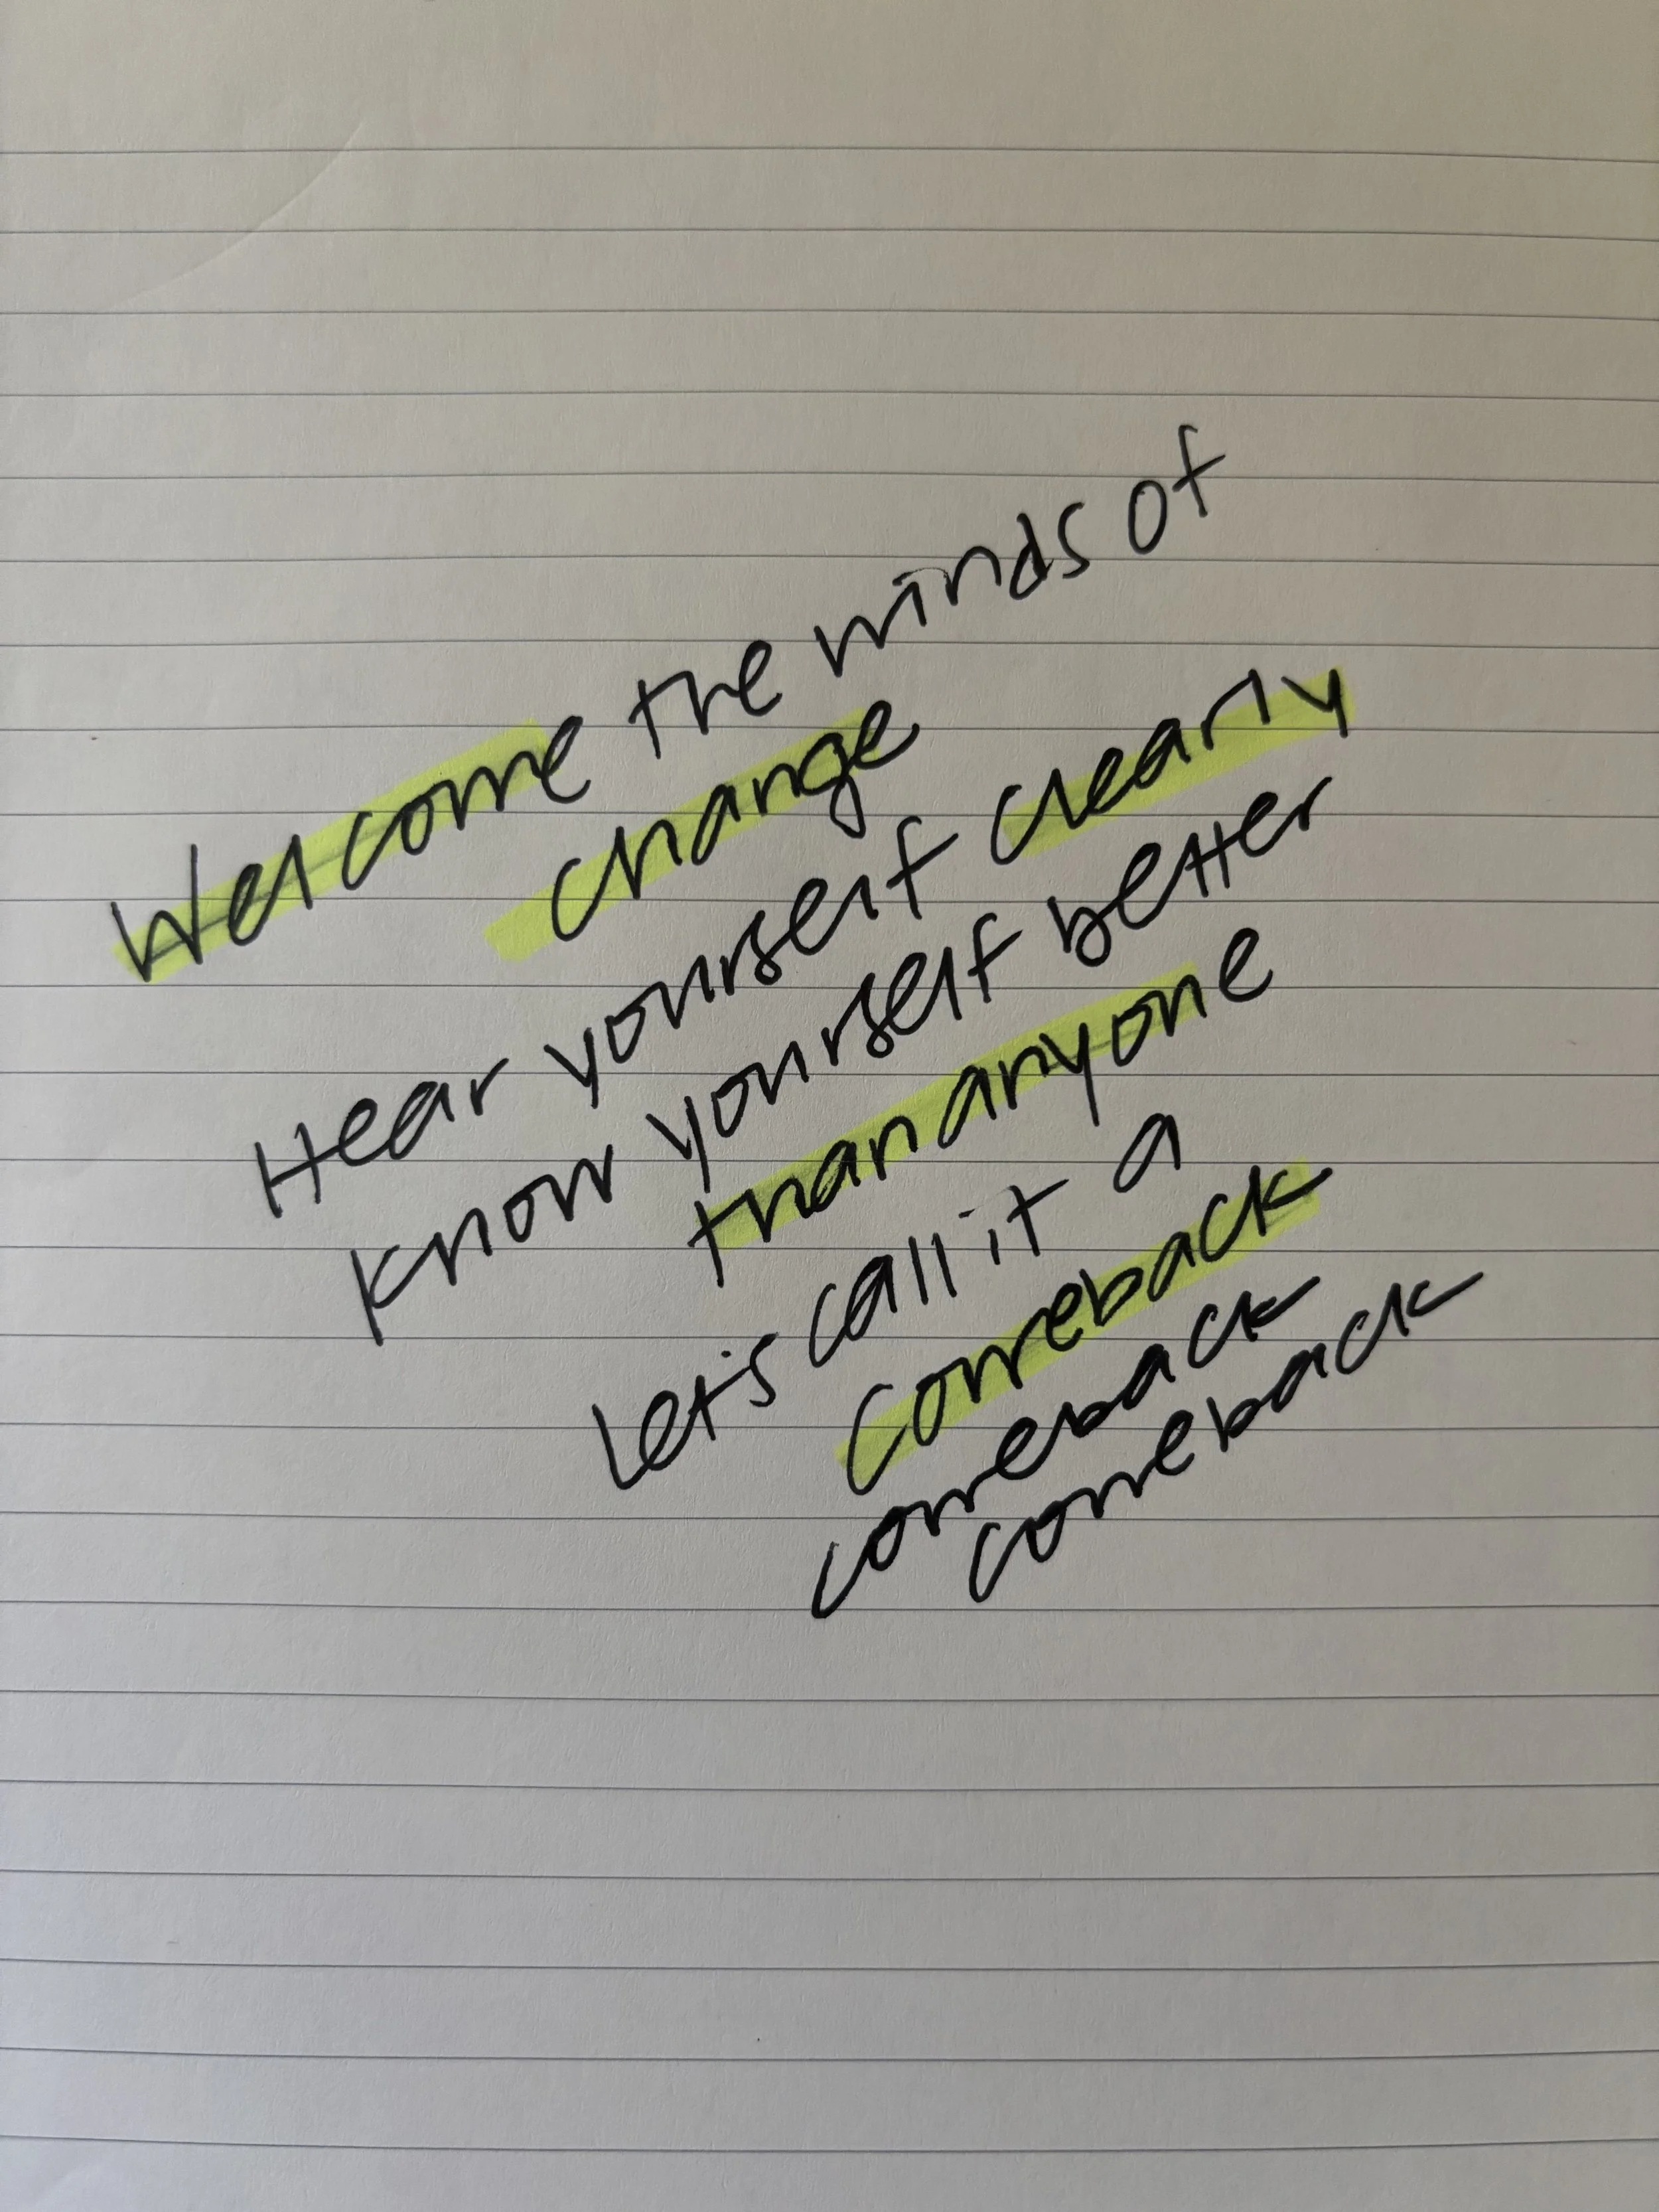 Welcome the winds of
change
Hear yourself clearly
Know yourself better
than anyone
Let's call it a
comeback
comeback
comeback